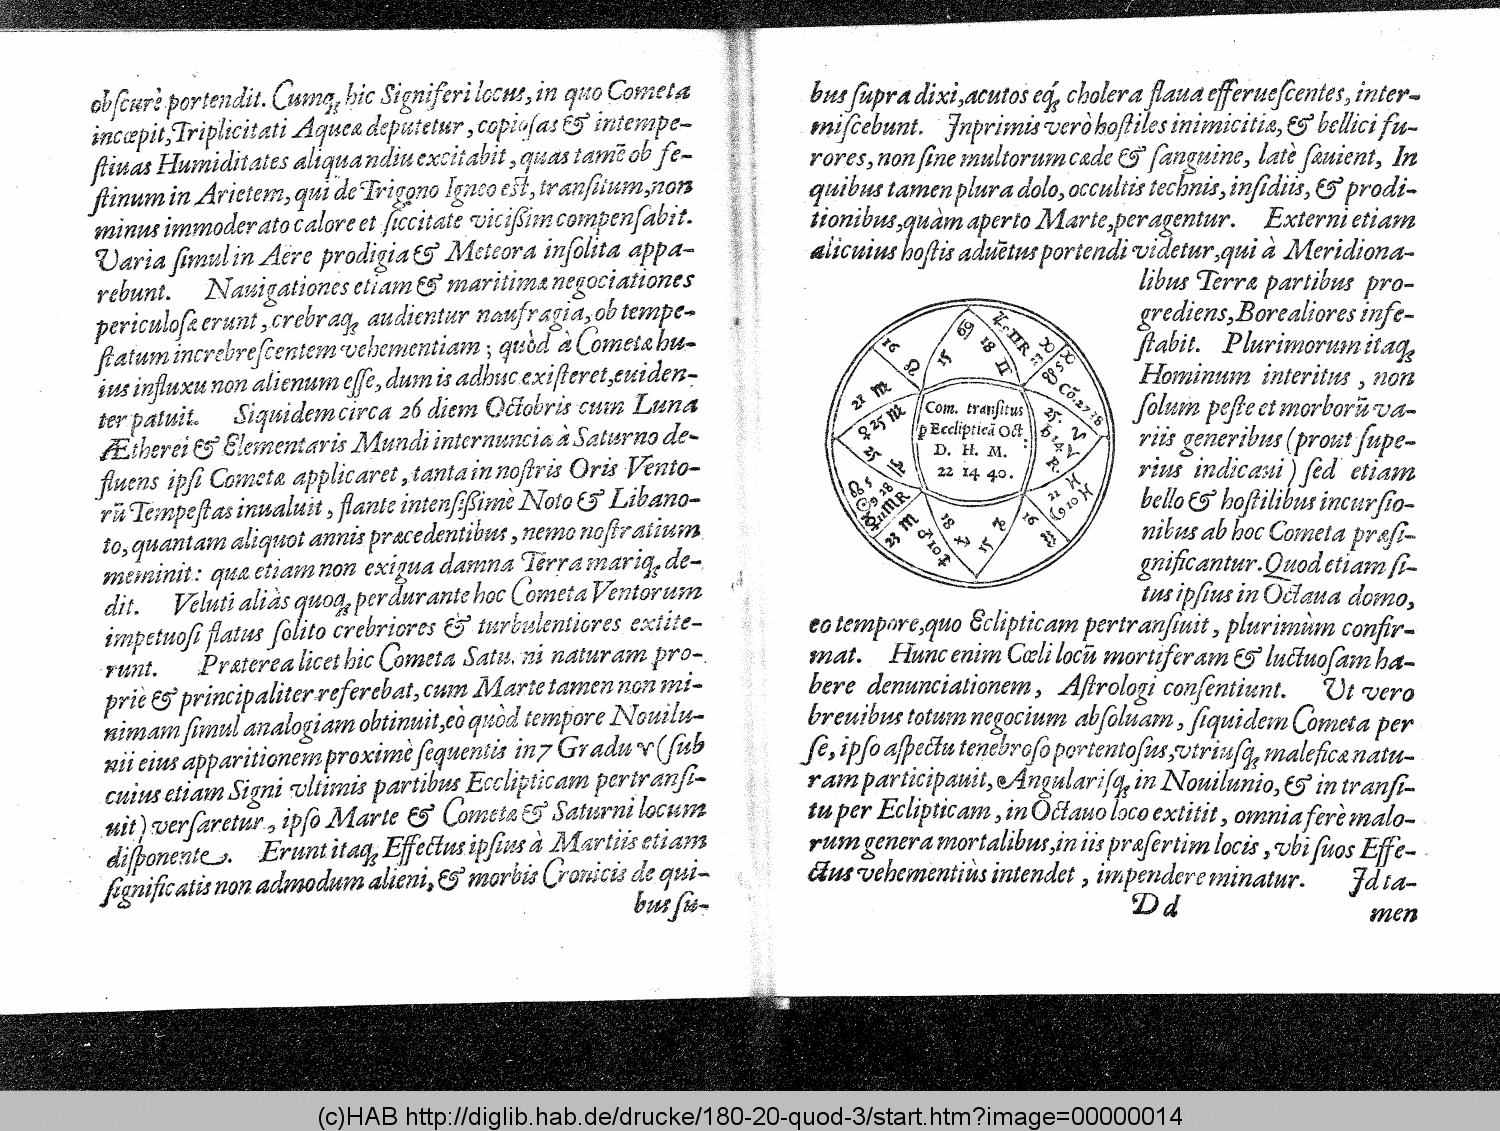 obſcurè portendit. Cumq; hic Signiferi locus, in quo Cometa
incœpit, Triplicitati Aqueæ deputetur, copioſas & intempe-
ſtiuas Humiditates aliquandiu excitabit, quas tamē ob fe-
ſtinum in Arietem, qui de Trigono Igneo eſt, tranſitum, non
minus immoderato calore et ſiccitate viciſsim compenſabit.
Varia ſimul in Aere prodigia & Meteora inſolita appa-
rebunt. Nauigationes etiam & maritimæ negociationes
periculoſæ erunt, crebraq; audientur naufragia, ob tempe-
ſtatum increbreſcentem vehementiam; quòd à Cometæ hu-
ius influxu non alienum eſſe, dum is adhuc exiſteret, euiden-
ter patuit. Siquidem circa 26 diem Octobris cum Luna
Ætherei & Elementaris Mundi internuncia à Saturno de-
fluens ipſi Cometæ applicaret, tanta in noſtris Oris Vento-
rū Tempeſtas inualuit, flante intenſiſsimè Noto & Libano-
to, quantam aliquot annis præcedentibus, nemo noſtratium
meminit: quæ etiam non exigua damna Terra mariq; de-
dit. Veluti aliàs quoq; perdurante hoc Cometa Ventorum
impetuoſi flatus ſolito crebriores & turbulentiores extite-
runt. Præterea licet hic Cometa Saturni naturam pro-
priè & principaliter referebat, cum Marte tamen non mi-
nimam ſimul analogiam obtinuit, eò quòd tempore Nouilu-
nii eius apparitionem proximè ſequentis in 7 Gradu ♈ (ſub
cuius etiam Signi vltimis partibus Ecclipticam pertranſi-
uit) verſaretur, ipſo Marte & Cometæ & Saturni locum
diſponente. Erunt itaq; Effectus ipſius à Martiis etiam
ſignificatis non admodum alieni, & morbis Cronicis de qui-
bus ſu-
bus ſupra dixi, acutos eq; cholera flaua efferueſcentes, inter-
miſcebunt. Inprimis verò hoſtiles inimicitiæ, & bellici fu-
rores, non ſine multorum cæde & ſanguine, latè ſæuient, In
quibus tamen plura dolo, occultis technis, inſidiis, & prodi-
tionibus, quàm aperto Marte, peragentur. Externi etiam
alicuius hoſtis aduētus portendi videtur, qui à Meridiona-
libus Terræ partibus pro-
grediens, Borealiores infe-
ſtabit. Plurimorum itaq;
Hominum interitus, non
ſolum peſte et morborū va-
riis generibus (prout ſupe-
rius indicaui) ſed etiam
bello & hoſtilibus incurſio-
nibus ab hoc Cometa præſi-
gnificantur. Quod etiam ſi-
tus ipſius in Octaua domo,
Com. tranſitus
p Ecclipticā Oct:
D. H. M.
22 14 40.
eo tempore, quo Eclipticam pertranſiuit, plurimùm confir-
mat. Hunc enim Cœli locū mortiferam & luctuoſam ha-
bere denunciationem, Aſtrologi conſentiunt. Vt vero
breuibus totum negocium abſoluam, ſiquidem Cometa per
ſe, ipſo aſpectu tenebroſo portentoſus, vtriuſq; maleficæ natu-
ram participauit, Angulariſq; in Nouilunio, & in tranſi-
tu per Eclipticam, in Octauo loco extitit, omnia ferè malo-
rum genera mortalibus, in iis præſertim locis, vbi ſuos Effe-
ctus vehementiùs intendet, impendere minatur. Id ta-
D d
men
(c)HAB http://diglib.hab.de/drucke/180-20-quod-3/start.htm?image=00000014